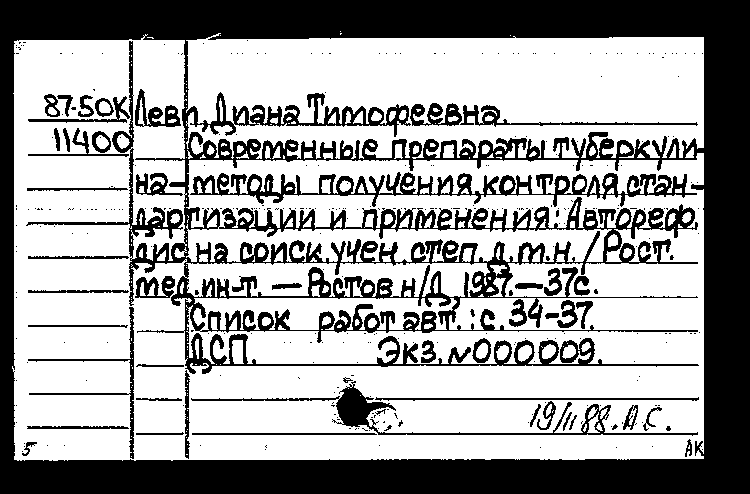 87-50К Леви, Диана Тимофеевна.
11400 Современные препараты туберкули-
на-методы получения, контроля, стан-
дартизации и применения: Автореф.
дис. на соиск. учен. степ. д.м.н. / Рост.
мед. ин-т. — Ростов н/Д, 1987. — 37с.
Список работ авт.: с. 34-37.
ДСП. Экз. №000009.
19/II 88. А.С.
5 АК